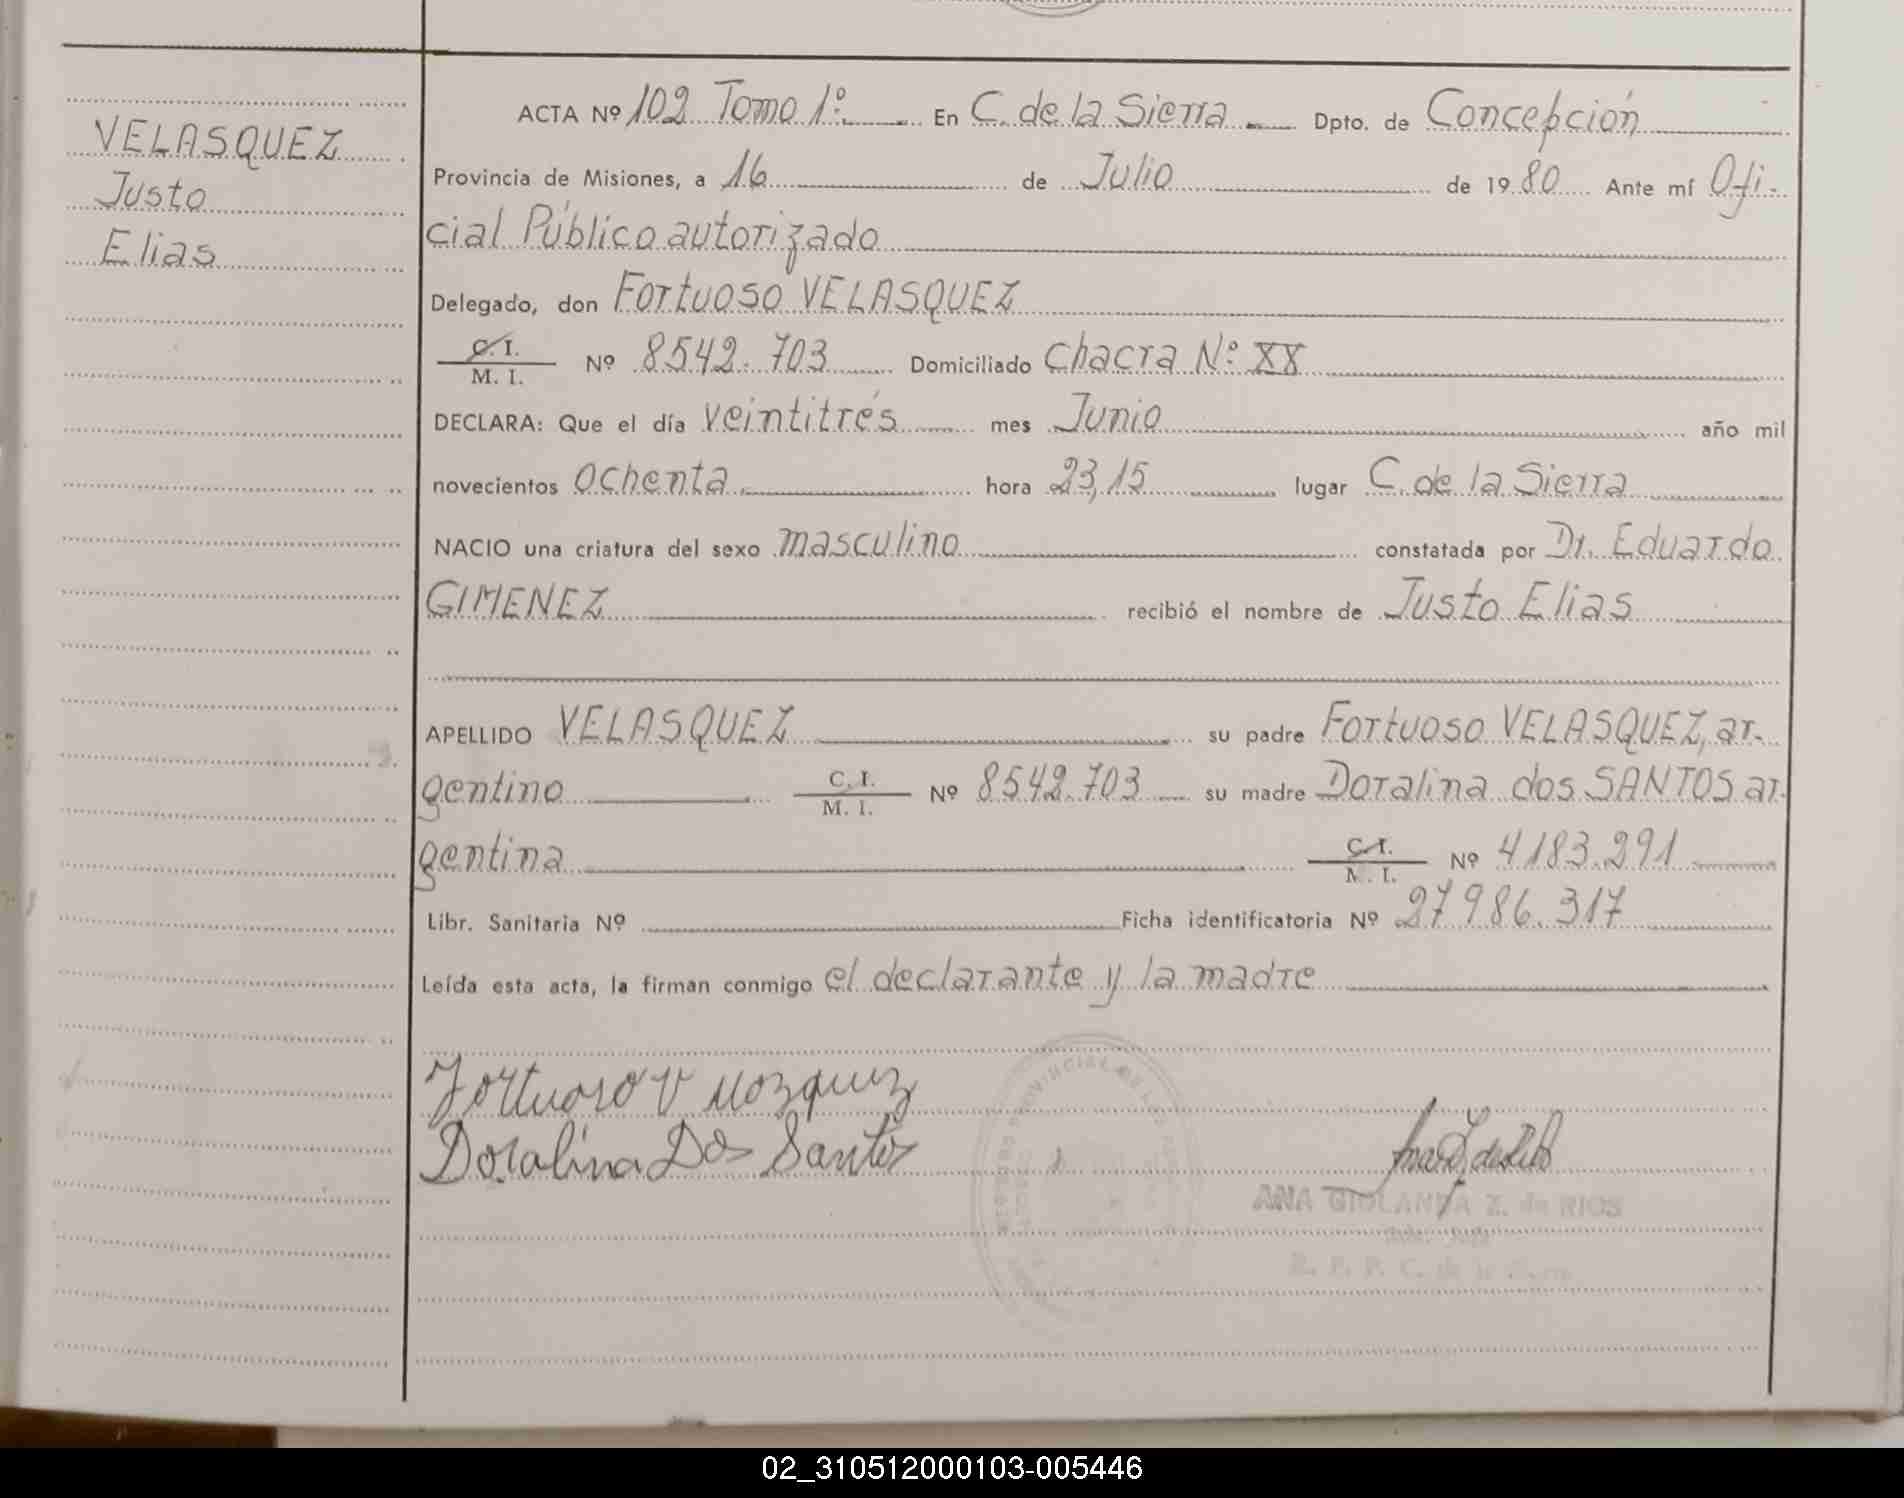 VELASQUEZ
Justo
Elias
ACTA Nº 102 Tomo 1º En C. de la Sierra Dpto. de Concepción
Provincia de Misiones, a 16 de Julio de 1980 Ante mí Ofi-
cial Público autorizado
Delegado, don Fortuoso VELASQUEZ
C. I.
M. I. Nº 8542.703 Domiciliado Chacra Nº XX
DECLARA: Que el día veintitrés mes Junio año mil
novecientos ochenta hora 23,15 lugar C. de la Sierra
NACIO una criatura del sexo masculino constatada por Dr. Eduardo
GIMENEZ recibió el nombre de Justo Elias
APELLIDO VELASQUEZ su padre Fortuoso VELASQUEZ, ar-
gentino C. I. M. I. Nº 8542.703 su madre Doralina dos SANTOS ar-
gentina C. I. M. I. Nº 4183.291
Libr. Sanitaria Nº Ficha identificatoria Nº 27986.317
Leída esta acta, la firman conmigo el declarante y la madre
Fortuoso V
Doralina Dos Santos
ANA GIOLANDA Z. de RIOS
02_310512000103-005446